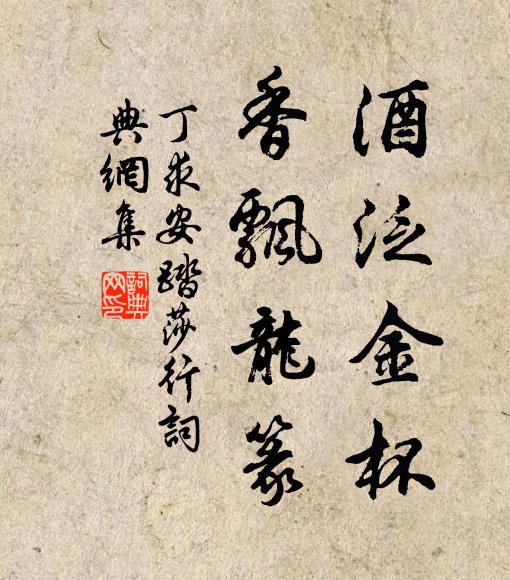 酒泛金杯
香飄龍篆
丁求安踏莎行詞
典網集
詞典網印